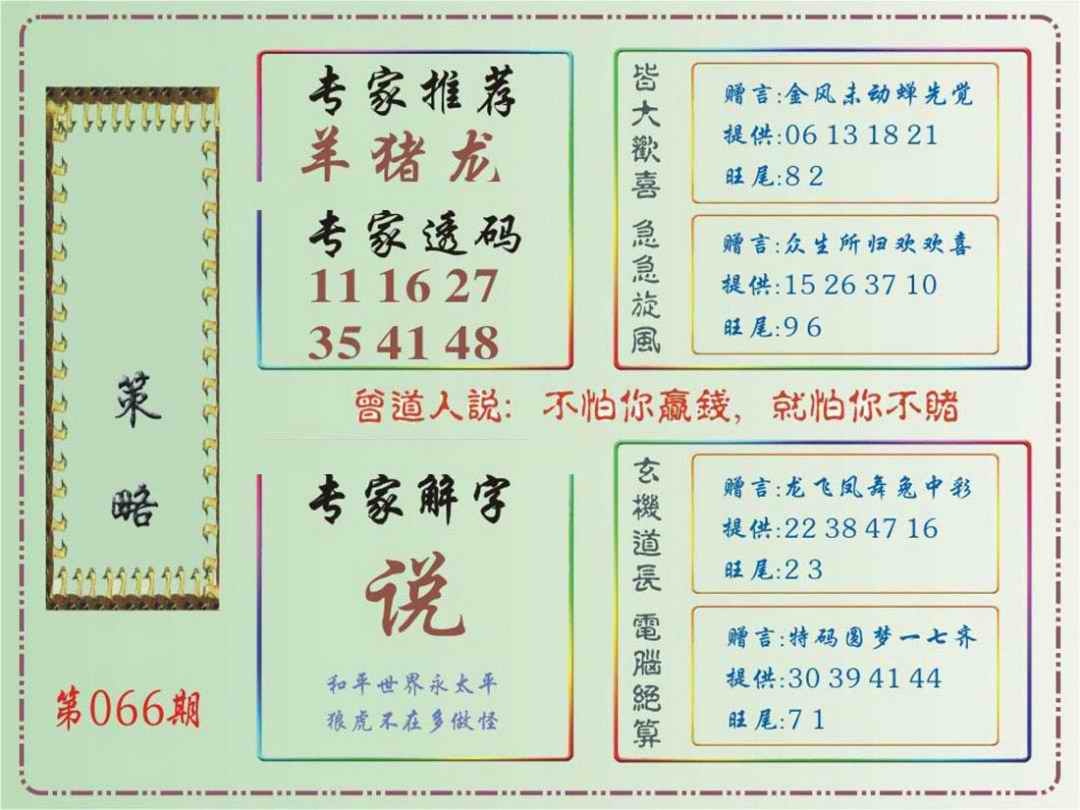 策略
第066期
专家推荐
羊猪龙
专家透码
11 16 27
35 41 48
皆大歡喜
赠言:金风未动蝉先觉
提供:06 13 18 21
旺尾:8 2
急急旋風
赠言:众生所归欢欢喜
提供:15 26 37 10
旺尾:9 6
曾道人説: 不怕你赢錢, 就怕你不賭
专家解字
说
和平世界永太平
狼虎不在多做怪
玄機道長
赠言:龙飞凤舞兔中彩
提供:22 38 47 16
旺尾:2 3
電腦絕算
赠言:特码圆梦一七齐
提供:30 39 41 44
旺尾:7 1